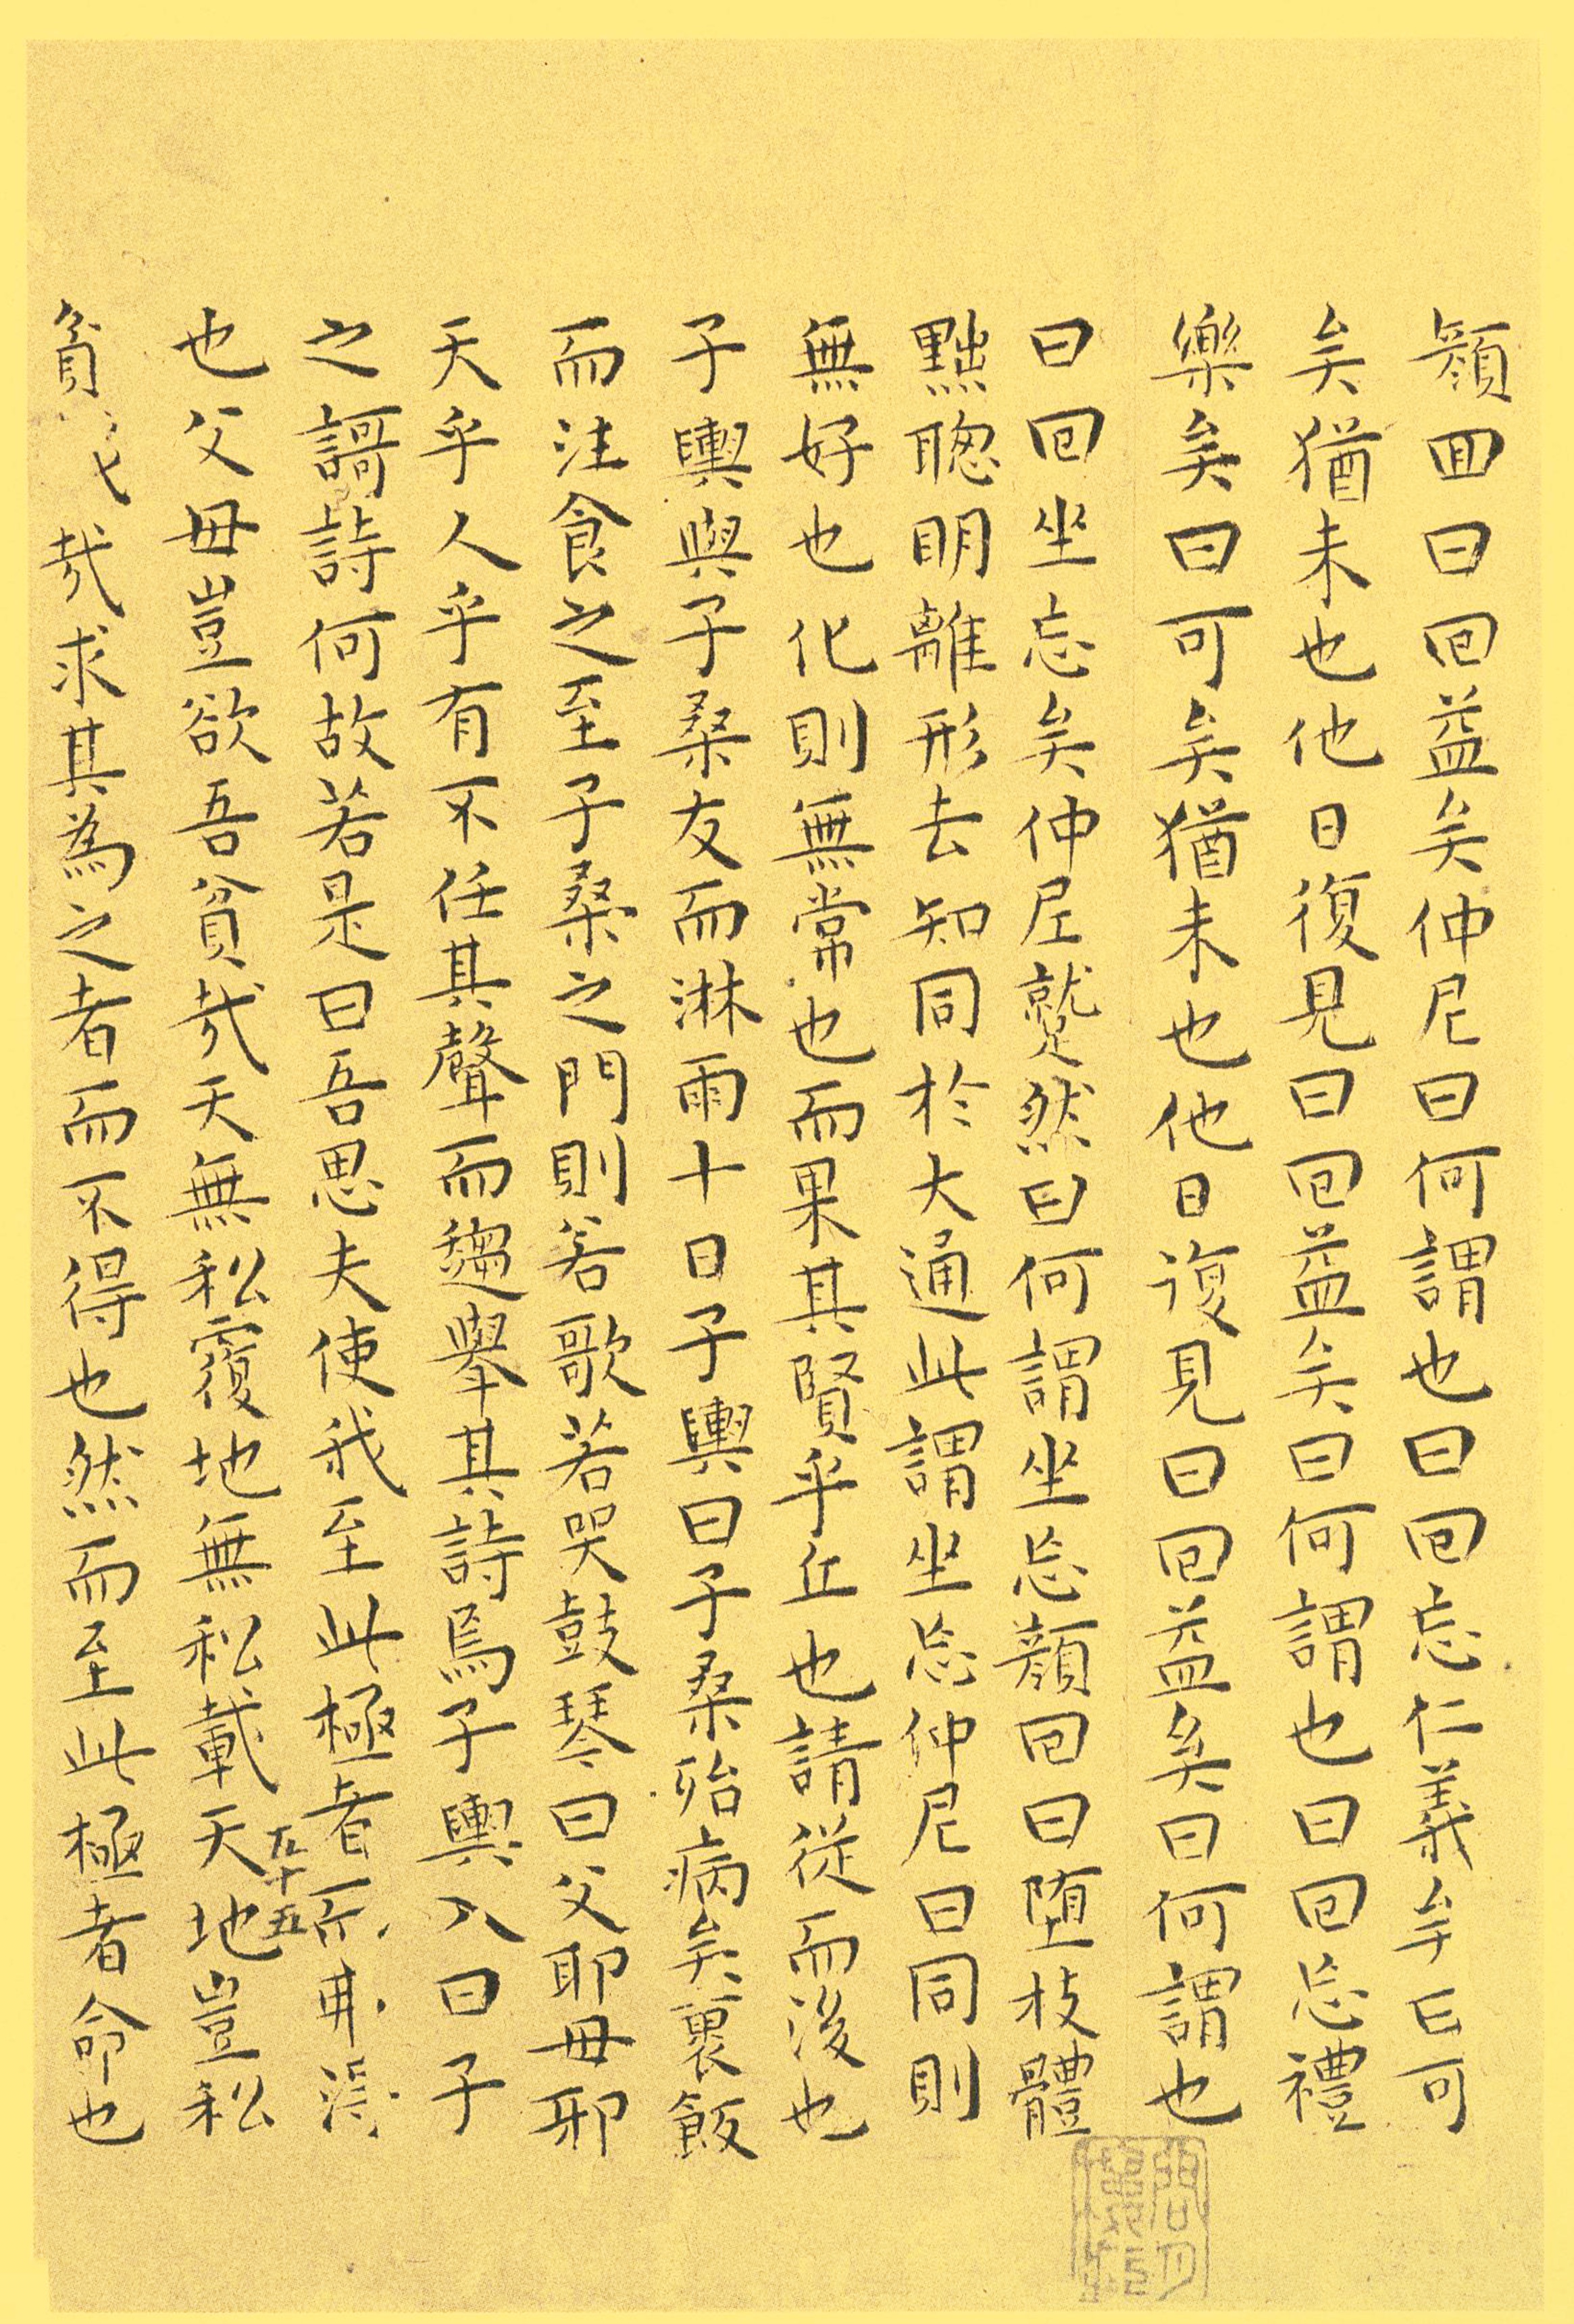 顏回曰回益矣仲尼曰何謂也曰回忘仁義矣曰可
矣猶未也他日復見曰回益矣曰何謂也曰回忘禮
樂矣曰可矣猶未也他日復見曰回益矣曰何謂也
曰回坐忘矣仲尼蹵然曰何謂坐忘顏回曰墮枝體
黜聰明離形去知同於大通此謂坐忘仲尼曰同則
無好也化則無常也而果其賢乎丘也請從而後也
子輿與子桑友而淋雨十日子輿曰子桑殆病矣裹飯
而注食之至子桑之門則若歌若哭鼓琴曰父耶母邪
天乎人乎有不任其聲而趨舉其詩焉子輿入曰子
之謌詩何故若是曰吾思夫使我至此極者而弗得
五十五
也父母豈欲吾貧哉天無私覆地無私載天地豈私
貧哉求其為之者而不得也然而至此極者命也